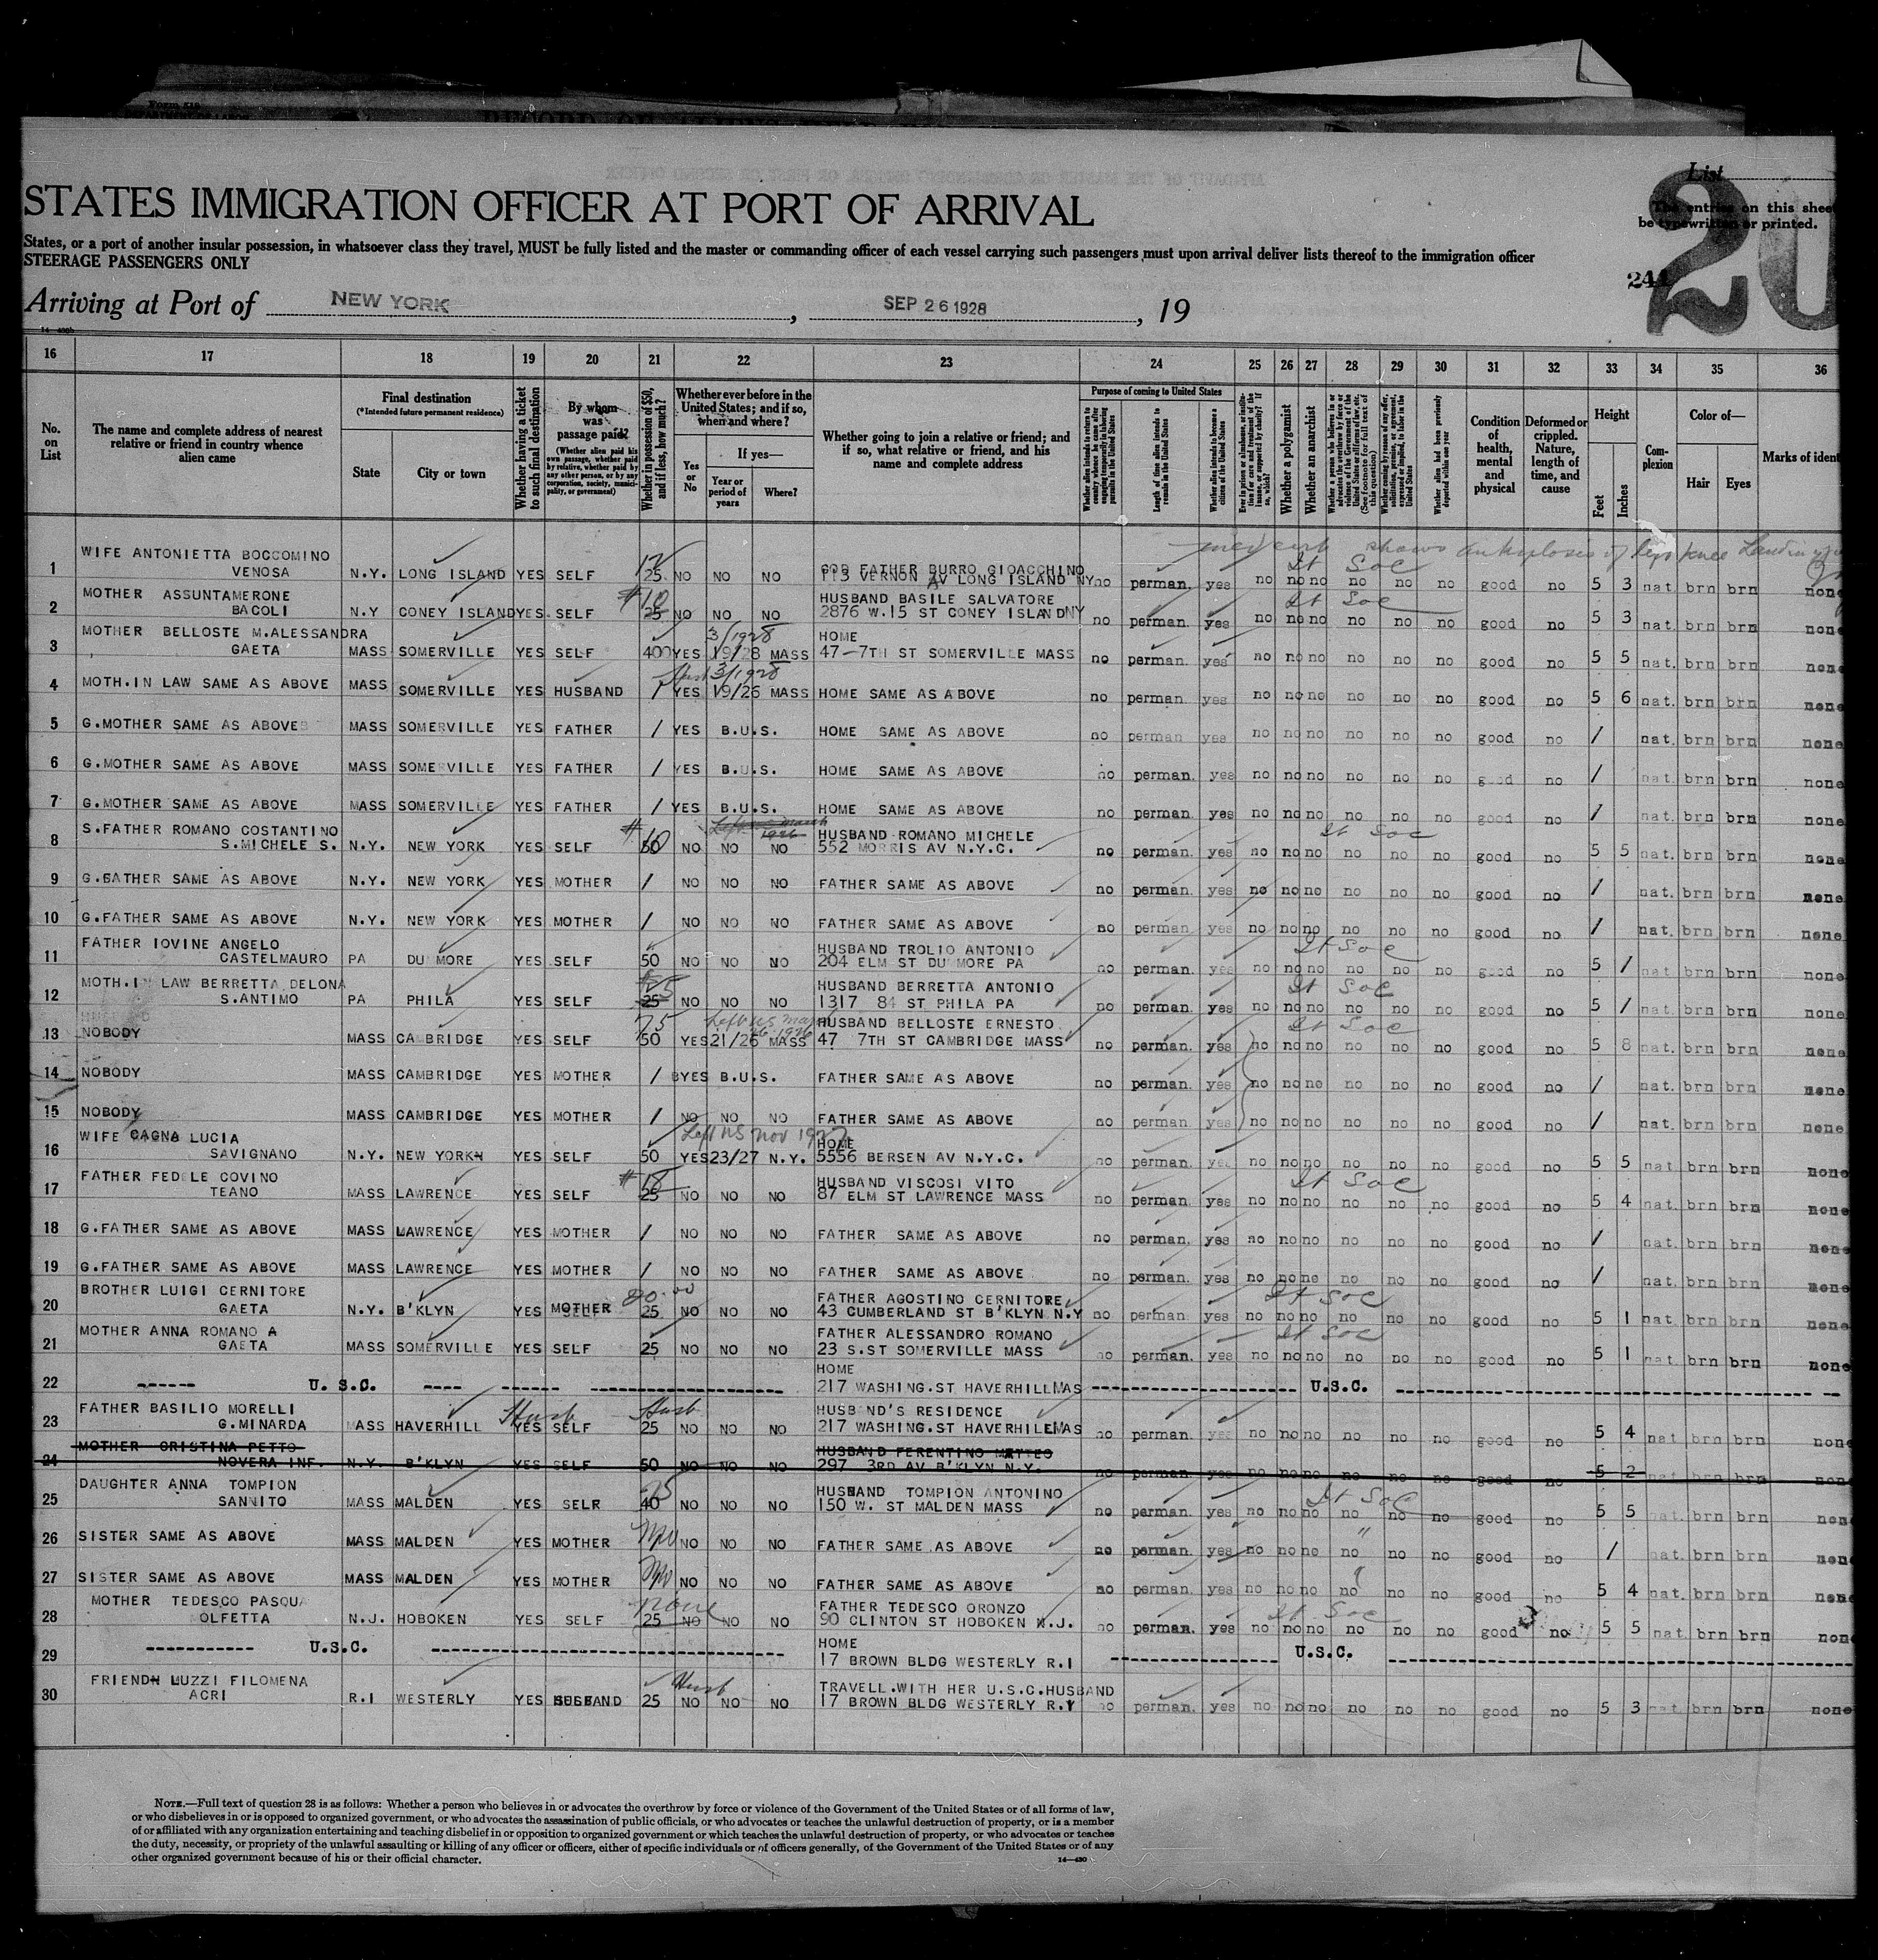 List
20
The entries on this sheet
be typewritten or printed.
244
STATES IMMIGRATION OFFICER AT PORT OF ARRIVAL
States, or a port of another insular possession, in whatsoever class they travel, MUST be fully listed and the master or commanding officer of each vessel carrying such passengers must upon arrival deliver lists thereof to the immigration officer
STEERAGE PASSENGERS ONLY
Arriving at Port of NEW YORK, SEP 26 1928, 19
16 17 18 19 20 21 22 23 24 25 26 27 28 29 30 31 32 33 34 35 36
No. on List
The name and complete address of nearest relative or friend in country whence alien came
Final destination
(*Intended future permanent residence)
State
City or town
Whether having a ticket to such final destination
By whom was passage paid?
(Whether alien paid his own passage, whether paid by relative, whether paid by any other person, or by any corporation, society, municipality, or government)
Whether in possession of $50, and if less, how much?
Whether ever before in the United States; and if so, when and where?
Yes or No
If yes—
Year or period of years
Where?
Whether going to join a relative or friend; and if so, what relative or friend, and his name and complete address
Purpose of coming to United States
Length of time alien intends to remain in the United States
Whether alien intends to become a citizen of the United States
Whether a polygamist
Whether an anarchist
Whether alien had been previously deported within one year
Condition of health, mental and physical
Deformed or crippled. Nature, length of time, and cause
Height
Feet
Inches
Complexion
Color of—
Hair
Eyes
Marks of iden
1 WIFE ANTONIETTA BOCCOMINO VENOSA N.Y. LONG ISLAND YES SELF 25 NO NO NO GOD FATHER BURRO GIOACCHINO 113 VERNON AV LONG ISLAND NY no perman. yes no no no no no no good no 5 3 nat brn brn none
2 MOTHER ASSUNTAMERONE BACOLI N.Y CONEY ISLAND YES SELF #10 25 NO NO NO HUSBAND BASILE SALVATORE 2876 W.15 ST CONEY ISLAND NY no perman. yes no no no no no no good no 5 3 nat. brn brn none
3 MOTHER BELLOSTE M.ALESSANDRA GAETA MASS SOMERVILLE YES SELF 400 YES 3/1928 19/28 MASS HOME 47-7TH ST SOMERVILLE MASS no perman. yes no no no no no no good no 5 5 nat. brn brn none
4 MOTH.IN LAW SAME AS ABOVE MASS SOMERVILLE YES HUSBAND / YES 3/1928 19/26 MASS HOME SAME AS ABOVE no perman. yes no no no no no no good no 5 6 nat. brn brn none
5 G.MOTHER SAME AS ABOVE MASS SOMERVILLE YES FATHER / YES B.U.S. HOME SAME AS ABOVE no perman yes no no no no no no good no / nat. brn brn none
6 G.MOTHER SAME AS ABOVE MASS SOMERVILLE YES FATHER / YES B.U.S. HOME SAME AS ABOVE no perman. yes no no no no no no good no / nat. brn brn none
7 G.MOTHER SAME AS ABOVE MASS SOMERVILLE YES FATHER / YES B.U.S. HOME SAME AS ABOVE no perman. yes no no no no no no good no / nat. brn brn none
8 S.FATHER ROMANO COSTANTINO S.MICHELE S. N.Y. NEW YORK YES SELF #10 50 NO NO NO HUSBAND ROMANO MICHELE 552 MORRIS AV N.Y.C. no perman. yes no no no no no no good no 5 5 nat. brn brn none
9 G.FATHER SAME AS ABOVE N.Y. NEW YORK YES MOTHER / NO NO NO FATHER SAME AS ABOVE no perman. yes no no no no no no good no / nat. brn brn none
10 G.FATHER SAME AS ABOVE N.Y. NEW YORK YES MOTHER / NO NO NO FATHER SAME AS ABOVE no perman. yes no no no no no no good no / nat. brn brn none
11 FATHER IOVINE ANGELO CASTELMAURO PA DU MORE YES SELF 50 NO NO NO HUSBAND TROLIO ANTONIO 204 ELM ST DU MORE PA no perman. yes no no no no no no good no 5 / nat brn brn none
12 MOTH.I LAW BERRETTA DELONA S.ANTIMO PA PHILA YES SELF 25 NO NO NO HUSBAND BERRETTA ANTONIO 1317 84 ST PHILA PA no perman. yes no no no no no no good no 5 / nat. brn brn none
13 NOBODY MASS CAMBRIDGE YES SELF 75 50 YES 21/26 MASS HUSBAND BELLOSTE ERNESTO 47 7TH ST CAMBRIDGE MASS no perman. yes no no no no no no good no 5 8 nat. brn brn none
14 NOBODY MASS CAMBRIDGE YES MOTHER / YES B.U.S. FATHER SAME AS ABOVE no perman. yes no no no no no no good no / nat. brn brn none
15 NOBODY MASS CAMBRIDGE YES MOTHER / NO NO NO FATHER SAME AS ABOVE no perman. yes no no no no no no good no / nat. brn brn none
16 WIFE CAGNA LUCIA SAVIGNANO N.Y. NEW YORK YES SELF 50 Left US Nov 1927 YES 23/27 N.Y. HOME 5556 BERSEN AV N.Y.C. no perman. yes no no no no no no good no 5 5 nat brn brn none
17 FATHER FEDELE COVINO TEANO MASS LAWRENCE YES SELF #18 25 NO NO NO HUSBAND VISCOSI VITO 87 ELM ST LAWRENCE MASS no perman. yes no no no no no no good no 5 4 nat. brn brn none
18 G.FATHER SAME AS ABOVE MASS LAWRENCE YES MOTHER / NO NO NO FATHER SAME AS ABOVE no perman. yes no no no no no no good no / nat. brn brn none
19 G.FATHER SAME AS ABOVE MASS LAWRENCE YES MOTHER / NO NO NO FATHER SAME AS ABOVE no perman. yes no no no no no no good no / nat. brn brn none
20 BROTHER LUIGI CERNITORE GAETA N.Y. B'KLYN YES MOTHER SELF 25 NO NO NO FATHER AGOSTINO CERNITORE 43 CUMBERLAND ST B'KLYN N.Y no perman. yes no no no no no no good no 5 1 nat. brn brn none
21 MOTHER ANNA ROMANO A GAETA MASS SOMERVILLE YES SELF 25 NO NO NO FATHER ALESSANDRO ROMANO 23 S.ST SOMERVILLE MASS no perman. yes no no no no no no good no 5 1 nat. brn brn none
22 ------ U.S.C. ---- ------ HOME 217 WASHING.ST HAVERHILL MAS ------ U.S.C. ------
23 FATHER BASILIO MORELLI G.MINARDA MASS HAVERHILL YES SELF Husb 25 NO NO NO HUSBAND'S RESIDENCE 217 WASHING.ST HAVERHILE MAS no perman. yes no no no no no no good no 5 4 nat brn brn none
24 MOTHER CRISTINA PETTO NOVERA INF. N.Y. B'KLYN YES SELF 50 NO NO NO HUSBAND FERENTINO MATTEO 297 3RD AV B'KLYN N.Y. no perman. yes no no no no no no good no 5 2 nat brn brn none
25 DAUGHTER ANNA TOMPION SANNITO MASS MALDEN YES SELR 75 40 NO NO NO HUSBAND TOMPION ANTONINO 150 W. ST MALDEN MASS no perman. yes no no no no no no good no 5 5 nat. brn brn none
26 SISTER SAME AS ABOVE MASS MALDEN YES MOTHER NO NO NO FATHER SAME AS ABOVE no perman. yes no no no no no no good no / nat. brn brn none
27 SISTER SAME AS ABOVE MASS MALDEN YES MOTHER NO NO NO FATHER SAME AS ABOVE no perman. yes no no no no no no good no 5 4 nat. brn brn none
28 MOTHER TEDESCO PASQUA OLFETTA N.J. HOBOKEN YES SELF none 25 NO NO NO FATHER TEDESCO ORONZO 90 CLINTON ST HOBOKEN N.J. no perman. yes no no no no no no good no 5 5 nat brn brn none
29 ----------- U.S.C. ------ HOME 17 BROWN BLDG WESTERLY R.I ------ U.S.C. ------
30 FRIEND LUZZI FILOMENA ACRI R.I WESTERLY YES HUSBAND 25 Husb NO NO NO TRAVELL.WITH HER U.S.C.HUSBAND 17 BROWN BLDG WESTERLY R.I no perman. yes no no no no no no good no 5 3 nat brn brn none
NOTE.—Full text of question 28 is as follows: Whether a person who believes in or advocates the overthrow by force or violence of the Government of the United States or of all forms of law,
or who disbelieves in or is opposed to organized government, or who advocates the assassination of public officials, or who advocates or teaches the unlawful destruction of property, or is a member
of or affiliated with any organization entertaining and teaching disbelief in or opposition to organized government or which teaches the unlawful destruction of property, or who advocates or teaches
the duty, necessity, or propriety of the unlawful assaulting or killing of any officer or officers, either of specific individuals or of officers generally, of the Government of the United States or of any
other organized government because of his or their official character.
14—430